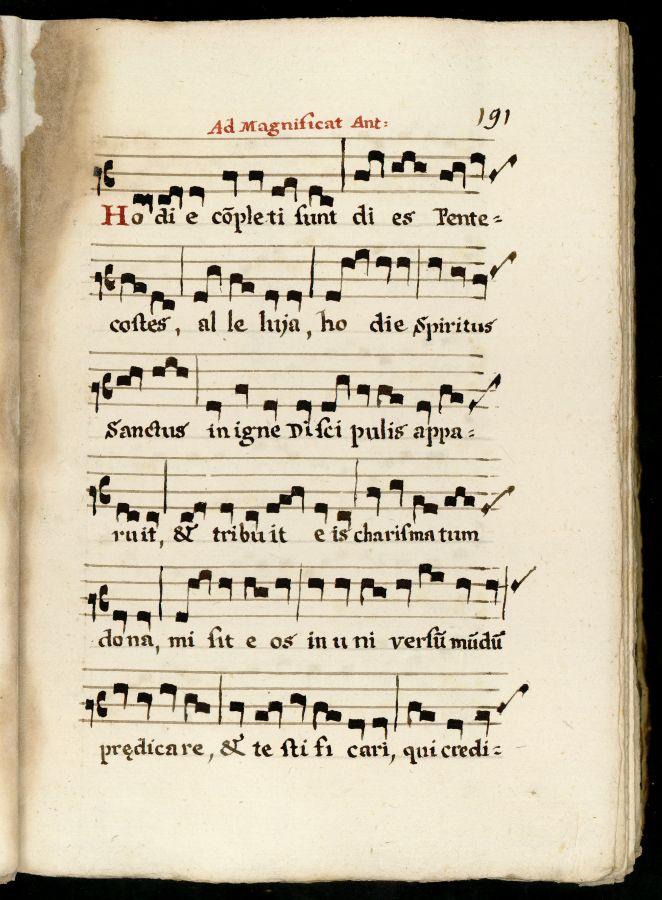 Ad Magnificat Ant:
191
Ho di e cõple ti sunt di es Pente=
costes, al le luja, ho die Spiritus
Sanctus in igne Disci pulis appa=
ruit, & tribu it e is charismatum
dona, mi sit e os in u ni versũ mũdũ
prędicare, & te sti fi cari, qui credi=